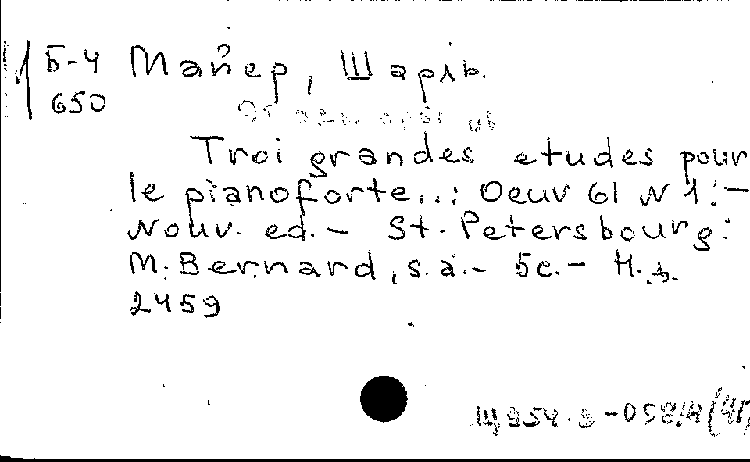 Б-4 Майер, Шарль.
650
Troi grandes etudes pour
le pianoforte...: Oeuv 61 N 1.-
Nouv. ed.- St. Petersbourg:
M. Bernard, s.a.- 5c.- Н.д.
2459